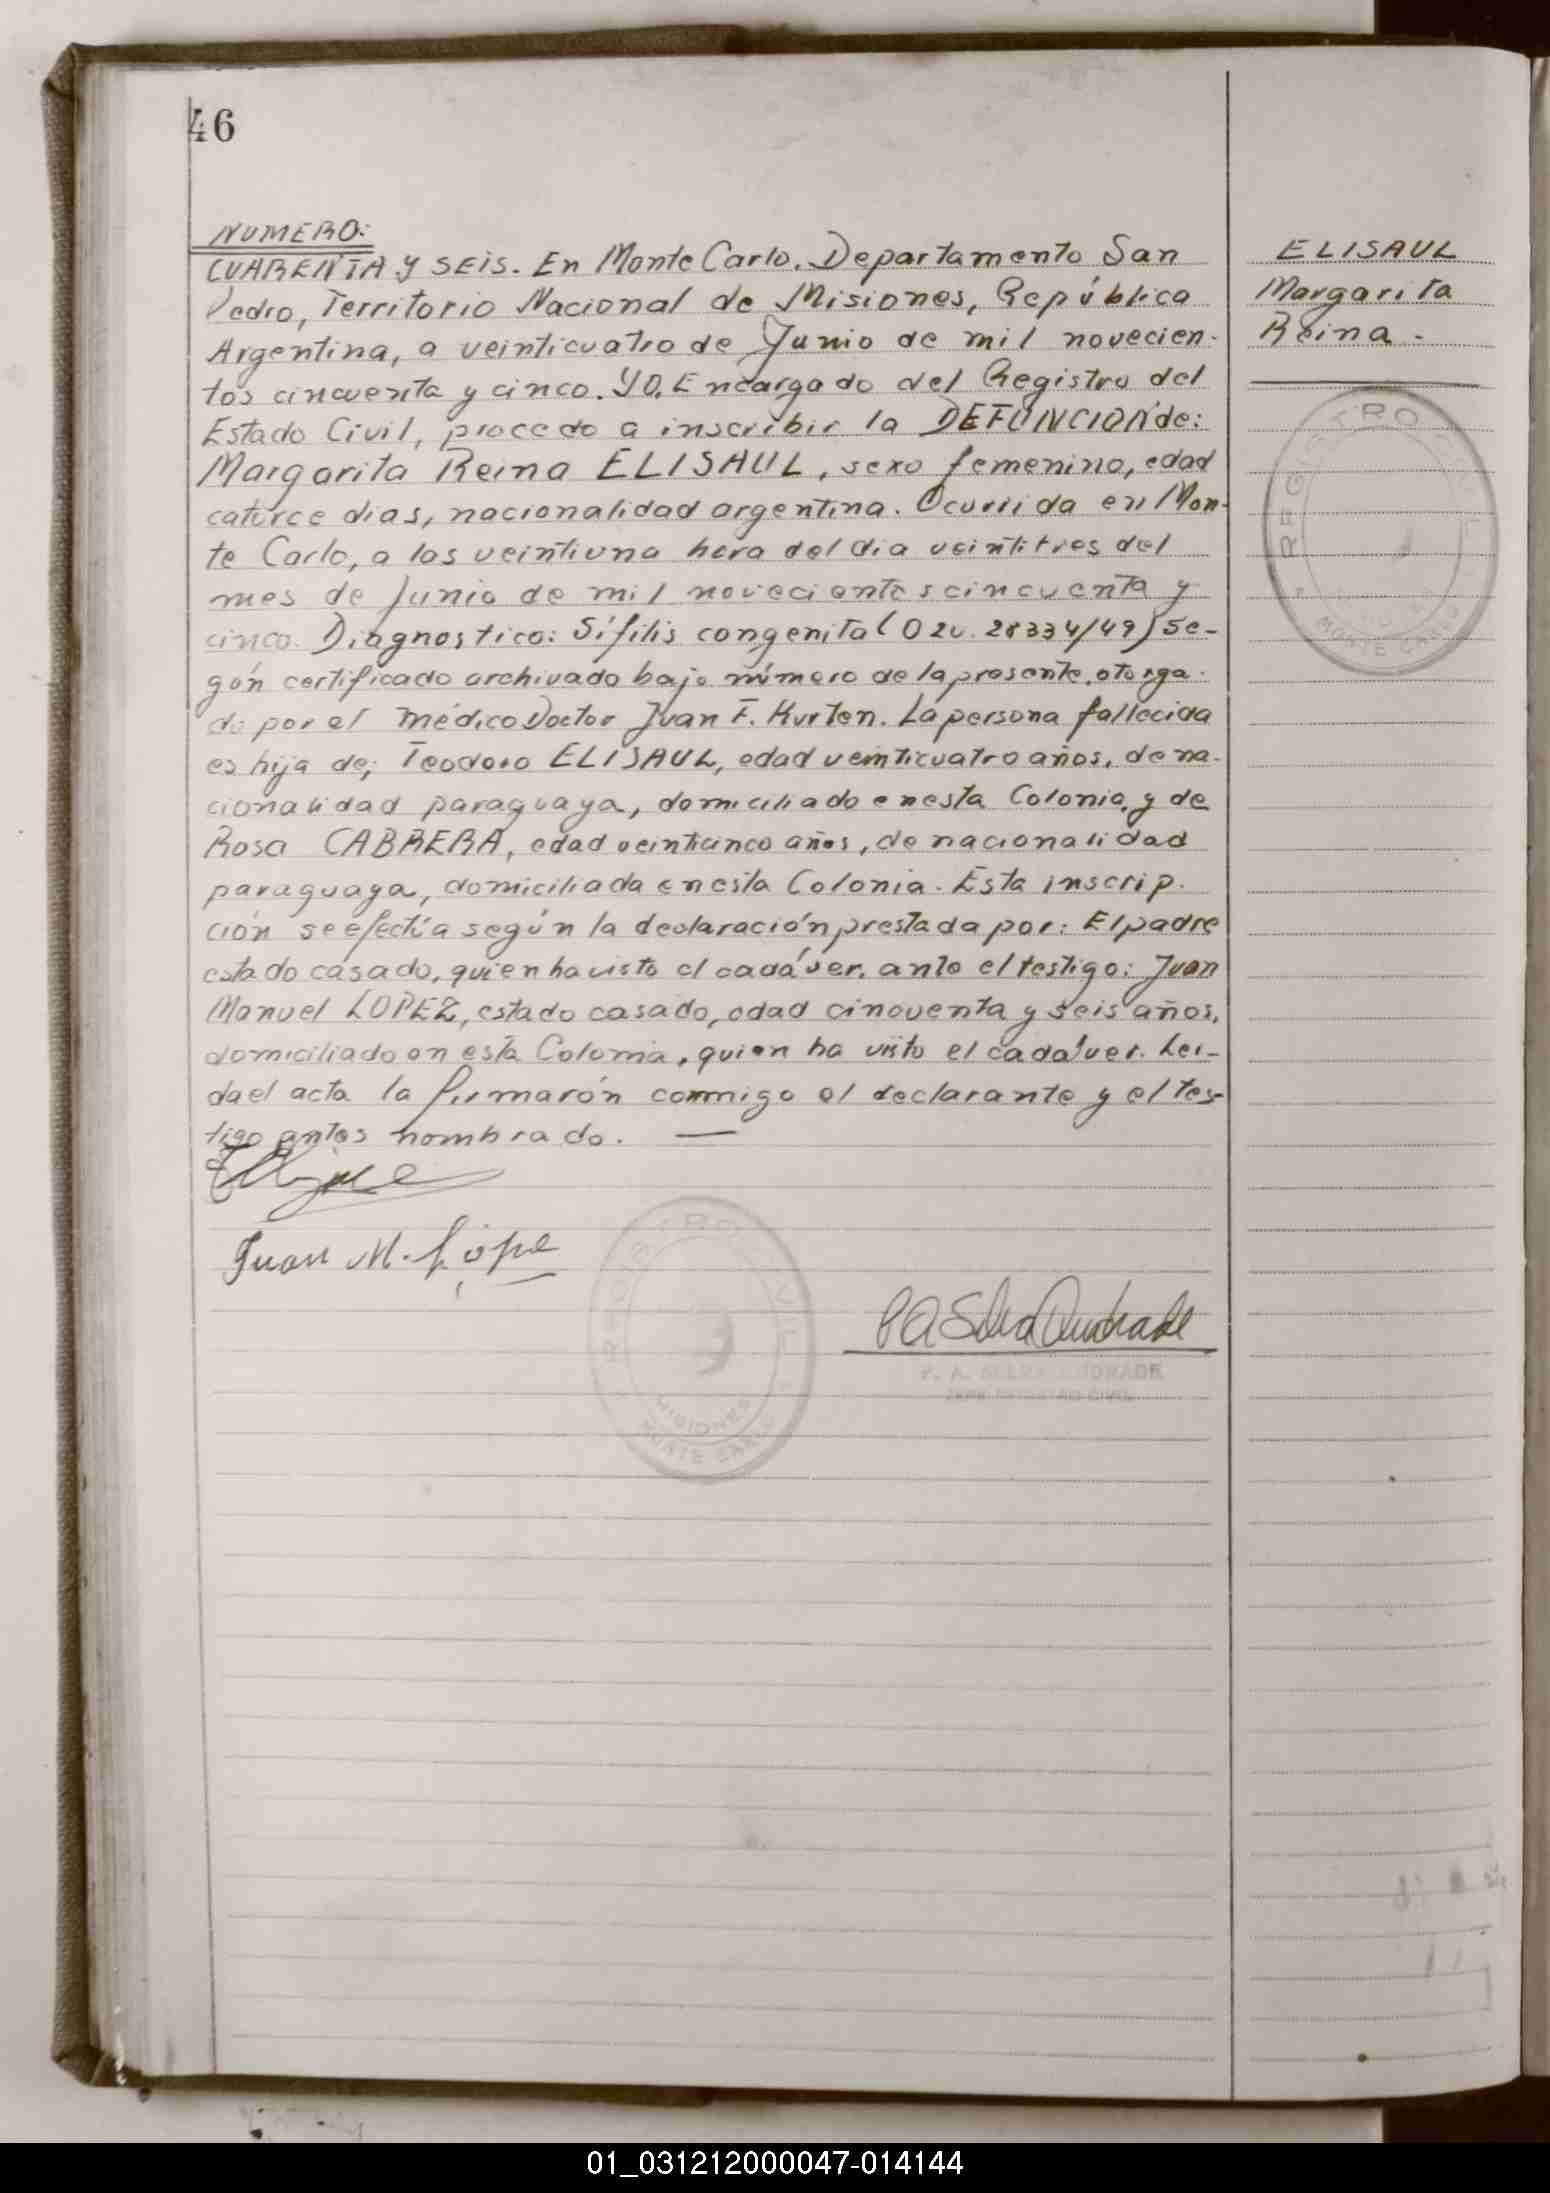 46
NUMERO:
CUARENTA y SEIS. En Monte Carlo, Departamento San
Pedro, Territorio Nacional de Misiones, República
Argentina, a veinticuatro de Junio de mil novecien-
tos cincuenta y cinco. YO, Encargado del Registro del
Estado Civil, procedo a inscribir la DEFUNCION de:
Margarita Reina ELISAUL, sexo femenino, edad
catorce dias, nacionalidad argentina. Ocurrida en Mon-
te Carlo, a las veintiuna hora del dia veintitres del
mes de Junio de mil novecientos cincuenta y
cinco. Diagnostico: Sífilis congenita (020. 28334/49) Se-
gún certificado archivado bajo número de la presente, otorga-
do por el médico Doctor Juan F. Kurten. La persona fallecida
es hija de; Teodoro ELISAUL, edad veinticuatro años, de na-
cionalidad paraguaya, domiciliado en esta Colonia, y de
Rosa CABRERA, edad veinticinco años, de nacionalidad
paraguaya, domiciliada en esta Colonia. Esta inscrip-
ción se efectúa según la declaración prestada por: El padre
estado casado, quien ha visto el cadáver, ante el testigo: Juan
Manuel LOPEZ, estado casado, edad cincuenta y seis años,
domiciliado en esta Colonia, quien ha visto el cadáver. Lei-
da el acta la firmarón conmigo el declarante y el tes-
tigo antes nombrado. —
Juan M. Lópe
P. A. SELVA ANDRADE
JEFE REGISTRO CIVIL
REGISTRO CIVIL
MISIONES
MONTE CARLO
ELISAUL
Margarita
Reina.
REGISTRO CIVIL
MONTE CARLO
01_031212000047-014144